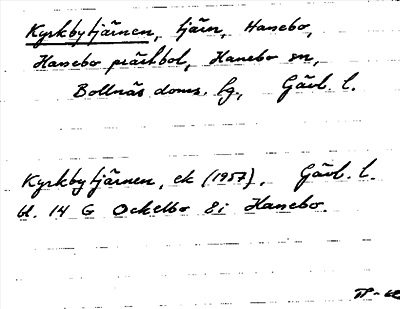 Kyrkbytjärnen, tjärn, Hanebo,
Hanebo prästbol, Hanebo sn,
Bollnäs doms. lg., Gävl. l.
Kyrkbytjärnen, ek (1957), Gävl. l.
bl. 14 G Ockelbo 8i Hanebo.